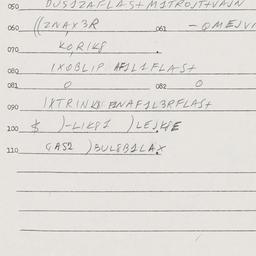 050 DUSJZAFLASt M1TROJTtVAJN
060 ((ZNAX3R 061 -QMEJVI
070 KO,RIK8
080 IXOBLIP AF1L1FLASt
081 O 082 O
090 IXTRINK8 NAF1L3RFLASt
100 & )-LIK81 )LEJK8E
110 GAS2 )BUL8B1LAX